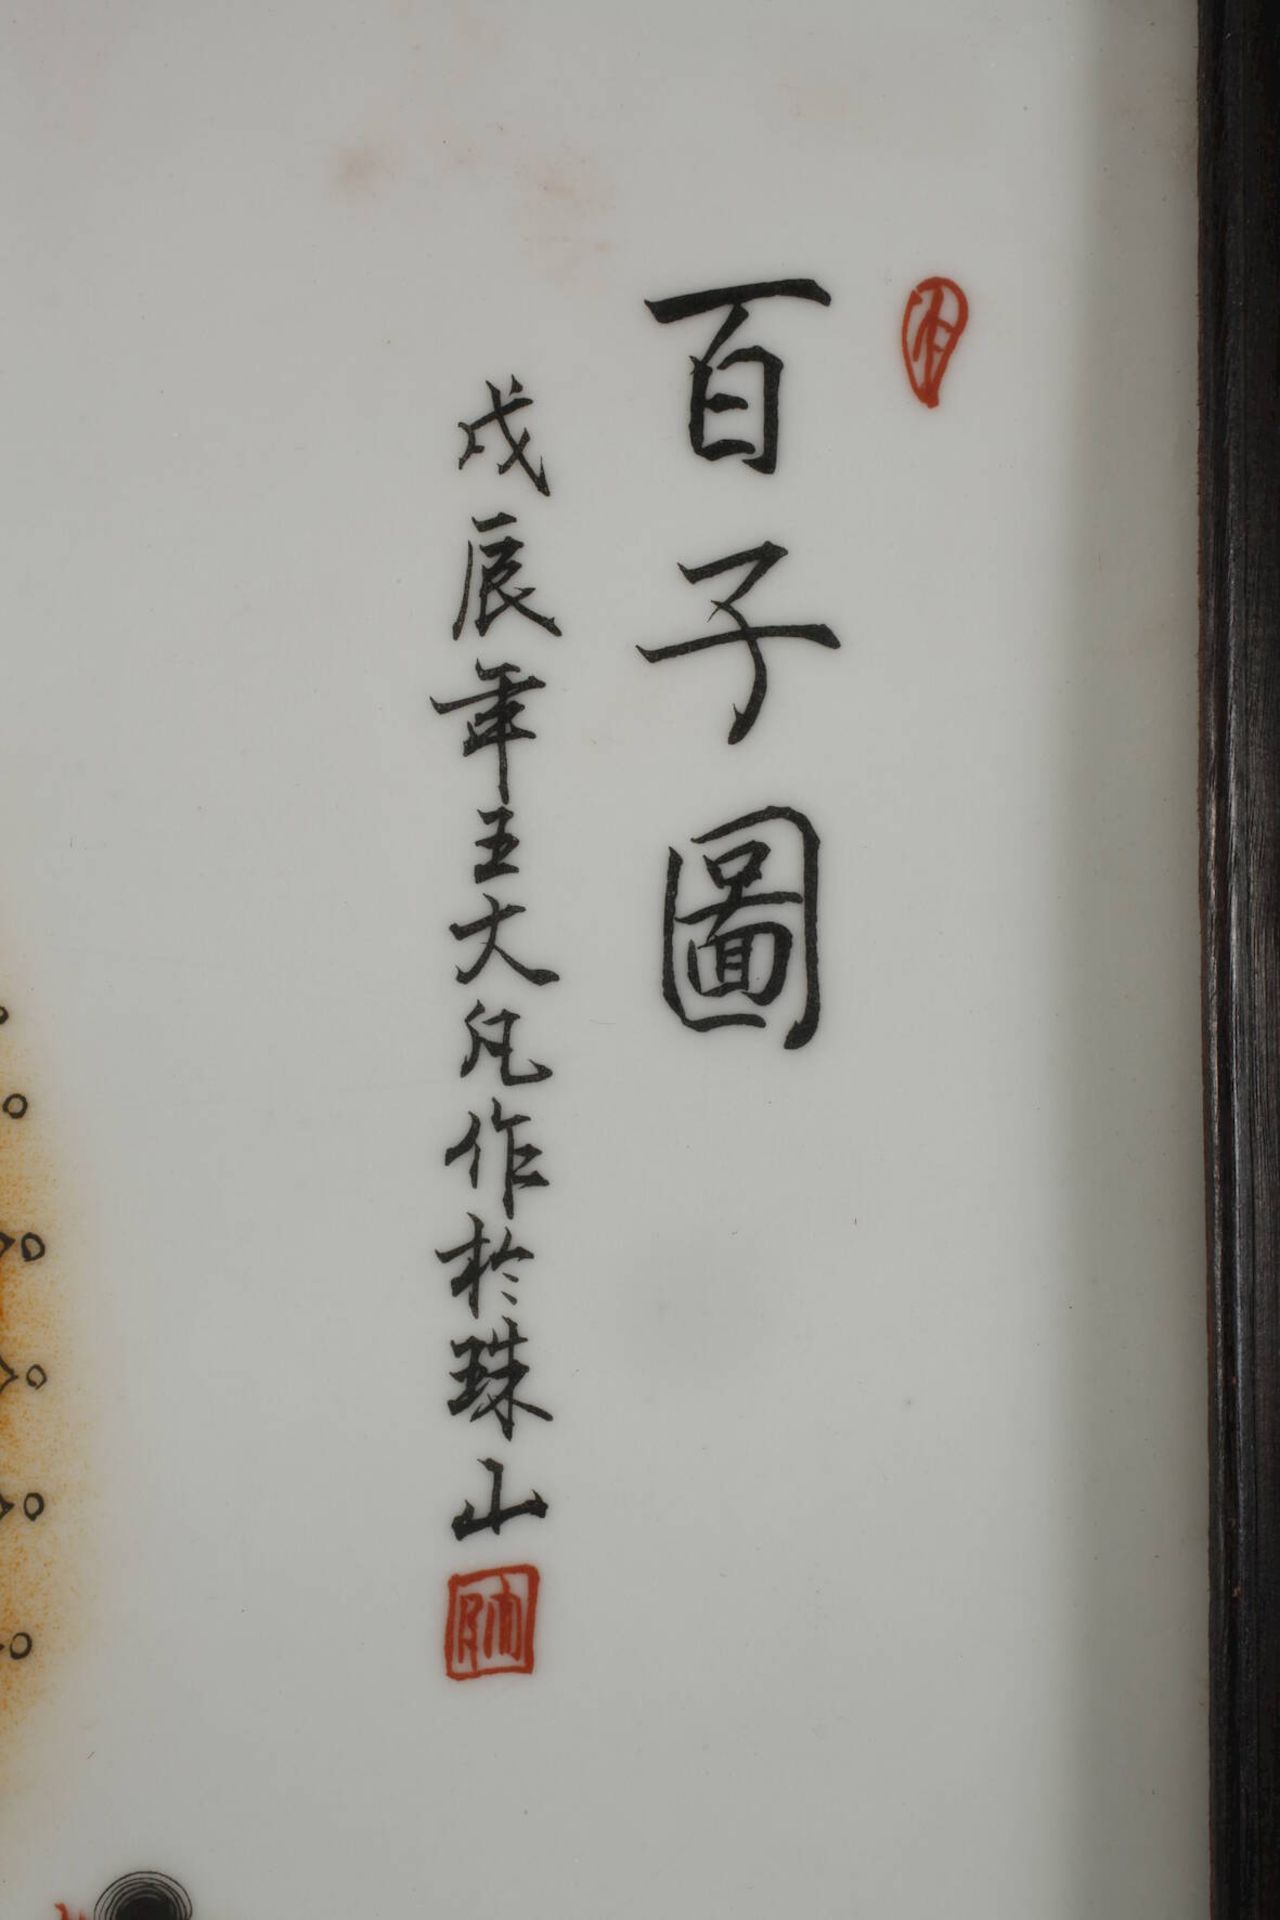 百子圖
戊辰年王大凡作於珠山